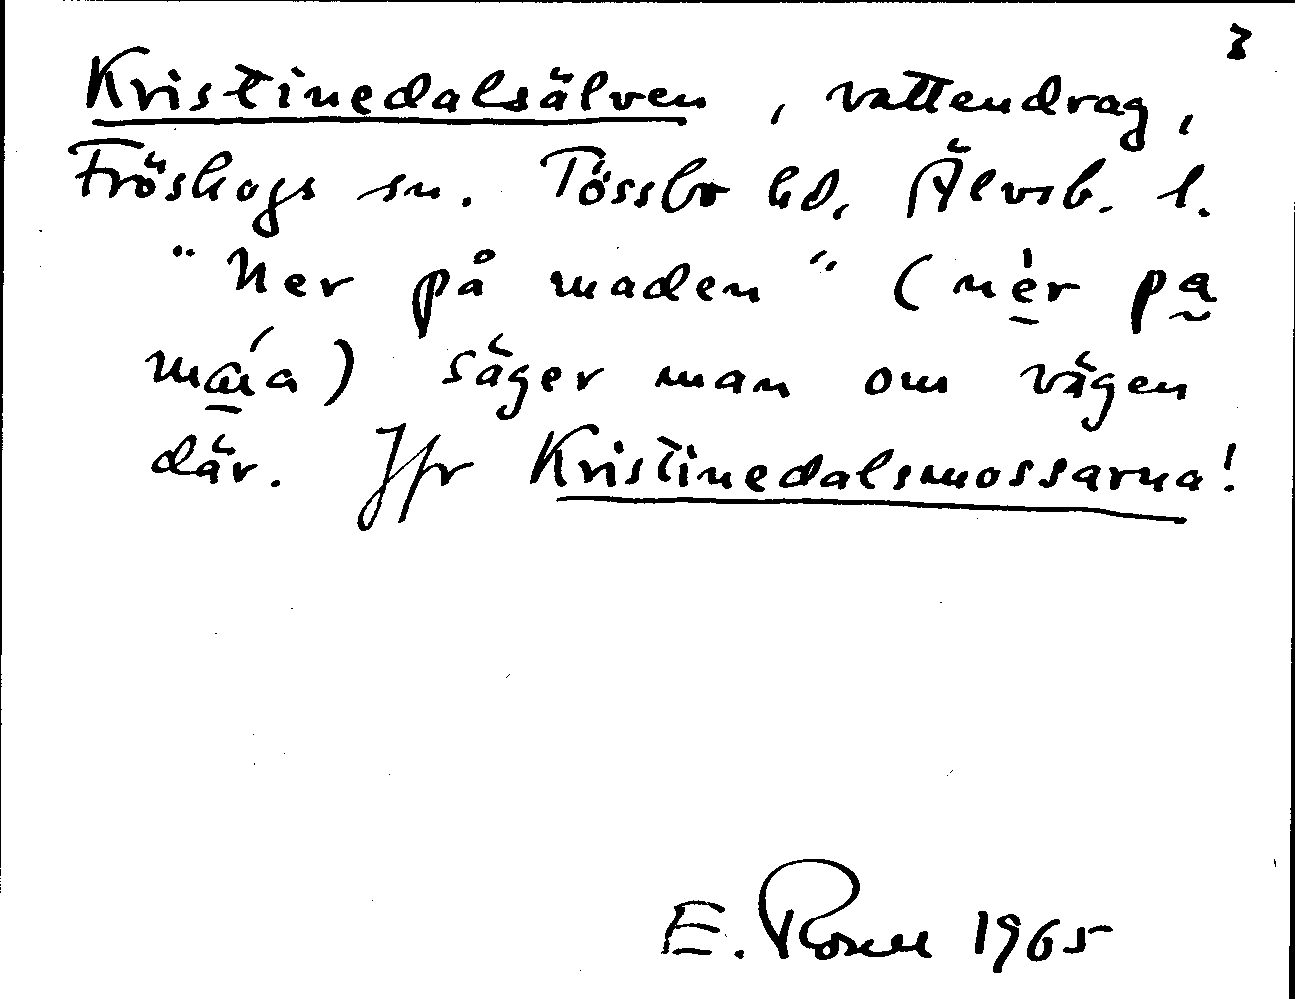 3
Kristinedalsälven, vattendrag,
Fröskogs sn. Tössbo hd, Älvsb. l.
"Ner på maden" (nèr pa
máa) säger man om vägen
där. Jfr Kristinedalsmossarna!
E. Rosell 1965